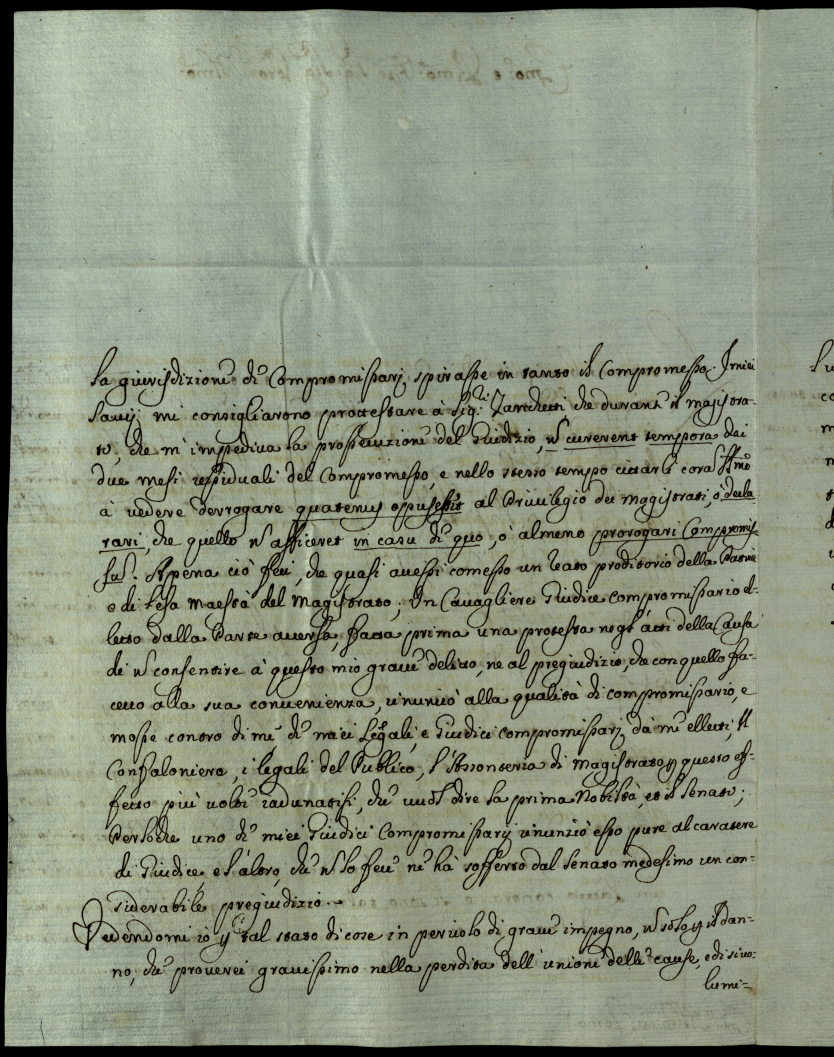 la giurisdizione de Compromissarj, spirasse in tanto il Compromesso. I miei
Savij mi consigliarono prottestare à Sig.ri Zanchetti che durante il magistra-
to, che m'impediva la prosecuzione del Giudizio, ñ currerent tempora dei
due mesi residuali del Compromesso, e nello stesso tempo cittarli cora
à vedere derrogare quatenus oppus al Privilegio dei magistrati, ò decla
rari, che quello ñ afficeret in casu de quo, ò almeno prorogari Compromis-
sus. Apena ciò feci, che quasi avessi comesso un reato proditorio della Patria
e di Lesa Maestà del Magistrato; Un Cavagliere Giudice compromissario el-
letto dalla Parte aversa, fatta prima una protesta negl'atti della Causa
di ñ consentire à questo mio grave delitto, ne al pregiudizio, che con quello fa-
cevo alla sua convenienza, rinunciò alla qualità di compromissario, e
mosse contro di me, de miei Legali, e Giudici compromissarj da me elletti Il
Confaloniero, i legali del Publico, l'Assonteria di magistrato p questo ef-
fetto più volte radunatisi, che vuol dire la prima Nobiltà, et il Senato;
Persoche uno de miei Giudici Compromissarij rinunziò esso pure al caratere
di Giudice, e l'altro, che ñ lo fece ne hà sofferto dal Senato medesimo un con-
siderabile pregiudizio.
Vedendomi io p tal stato di cose in pericolo di grave impegno, ñ solo p il dan-
no, che proverei gravissimo nella perdita dell'unione delle cause, e di
lumi-